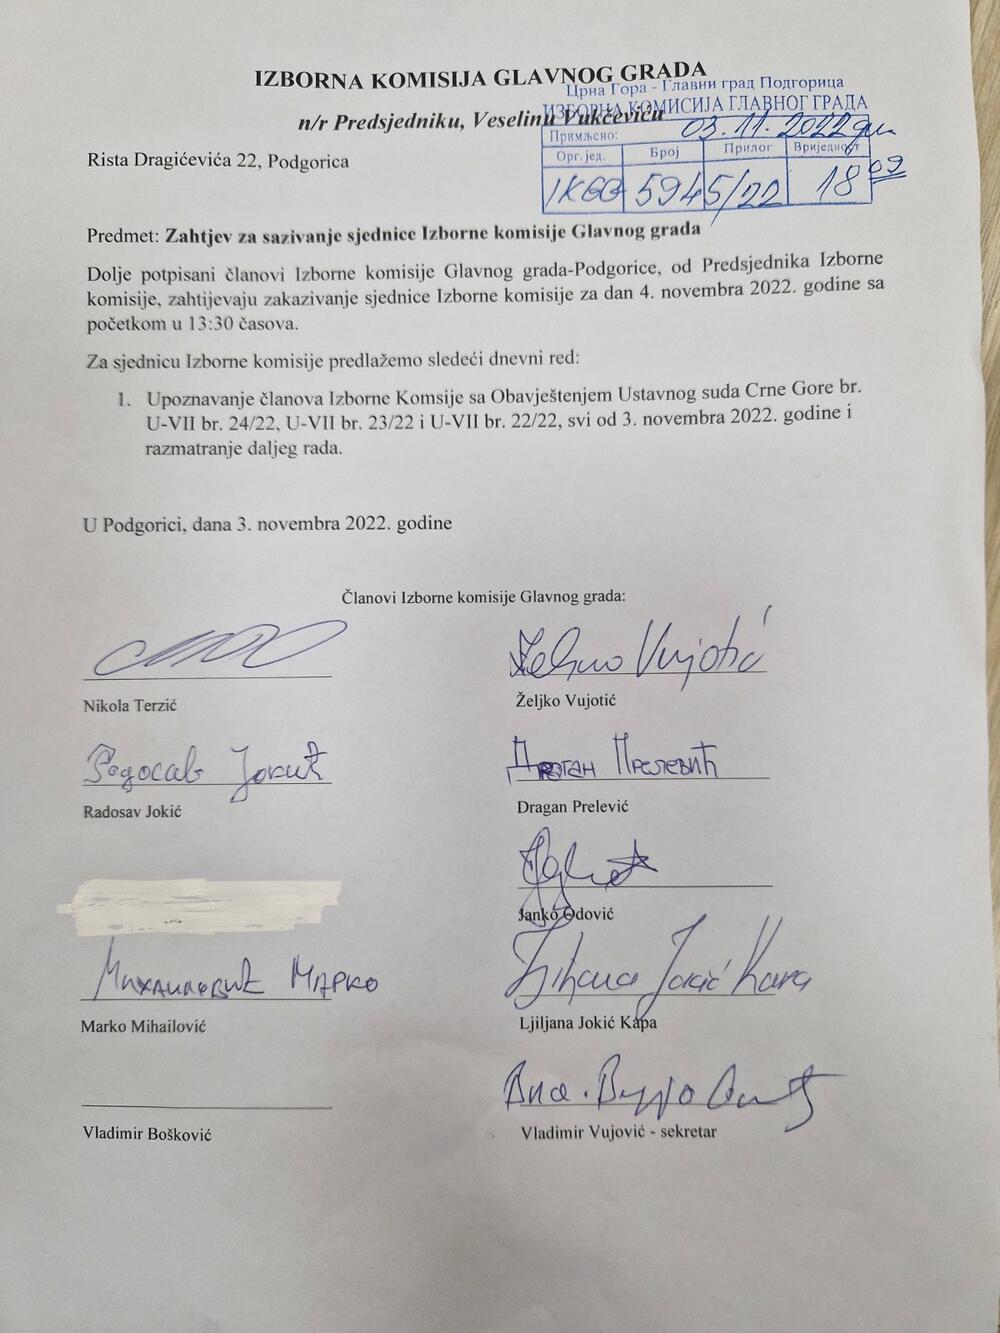 IZBORNA KOMISIJA GLAVNOG GRADA
n/r Predsjedniku, Veselinu Vukčeviću
Rista Dragićevića 22, Podgorica
Црна Гора - Главни град Подгорица
ИЗБОРНА КОМИСИЈА ГЛАВНОГ ГРАДА
Примљено: 03.11.2022
Орг. јед. Број Прилог Вриједност
5945/22 18 09
Predmet: Zahtjev za sazivanje sjednice Izborne komisije Glavnog grada
Dolje potpisani članovi Izborne komisije Glavnog grada-Podgorice, od Predsjednika Izborne
komisije, zahtijevaju zakazivanje sjednice Izborne komisije za dan 4. novembra 2022. godine sa
početkom u 13:30 časova.
Za sjednicu Izborne komisije predlažemo sledeći dnevni red:
1. Upoznavanje članova Izborne Komsije sa Obavještenjem Ustavnog suda Crne Gore br.
U-VII br. 24/22, U-VII br. 23/22 i U-VII br. 22/22, svi od 3. novembra 2022. godine i
razmatranje daljeg rada.
U Podgorici, dana 3. novembra 2022. godine
Članovi Izborne komisije Glavnog grada:
Željko Vujotić
Nikola Terzić
Željko Vujotić
Радосав Јокић
Драган Прелевић
Radosav Jokić
Dragan Prelević
Janko Odović
Михаиловић Марко
Ljiljana Jokić Kapa
Marko Mihailović
Ljiljana Jokić Kapa
Vladimir Bošković
Vladimir Vujović - sekretar